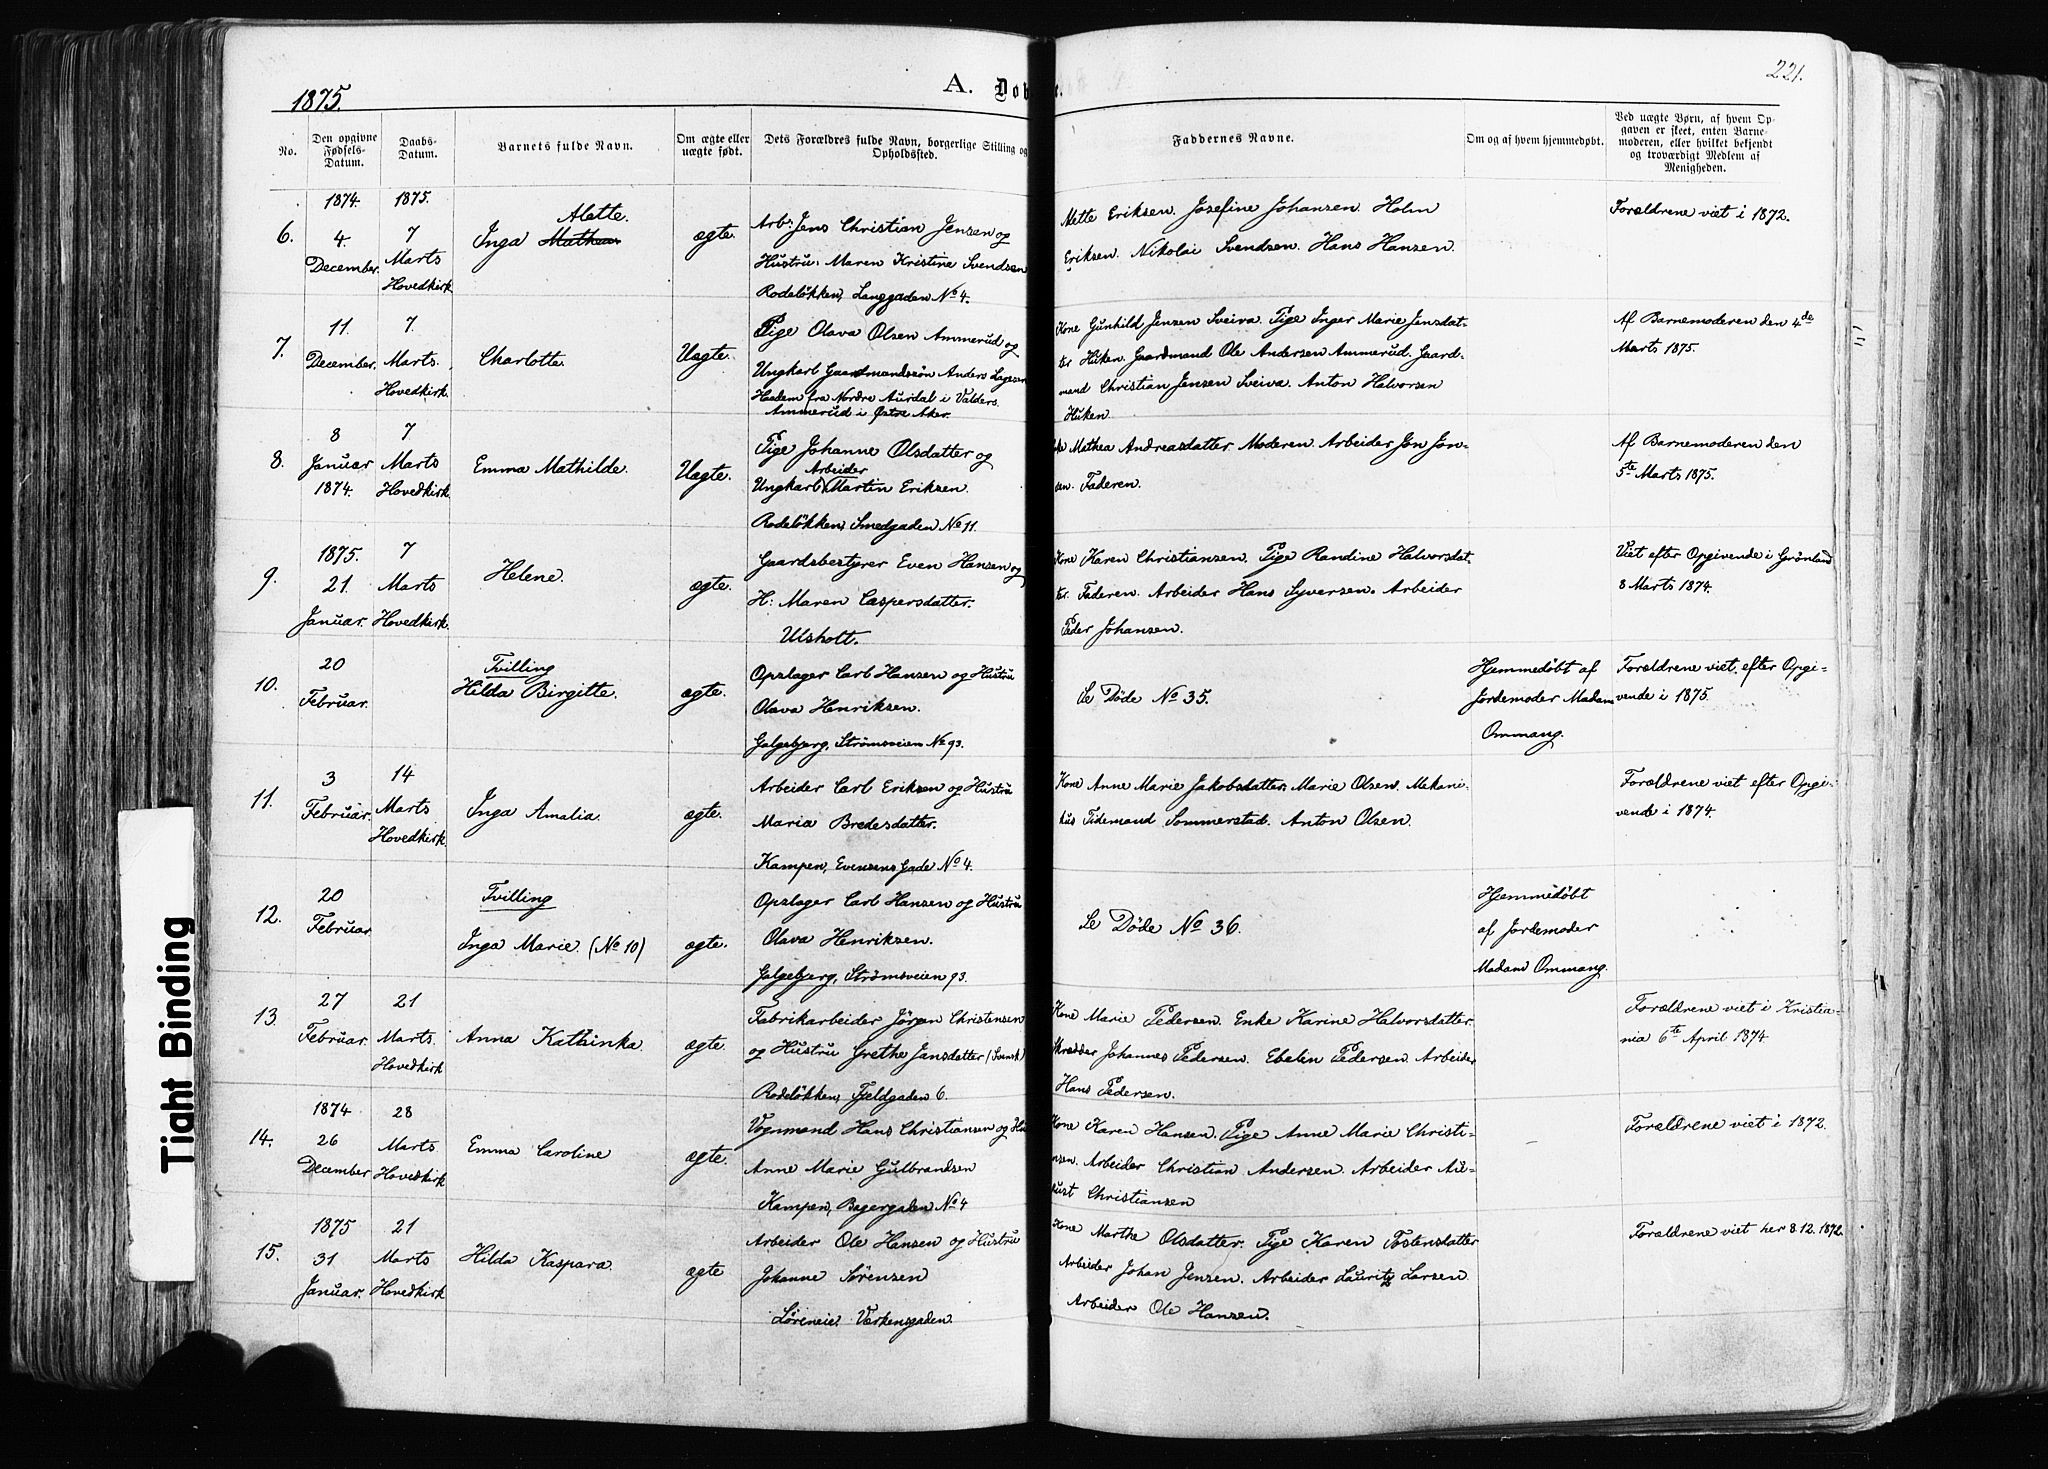 1875.
A.
221.
No.
Den opgivne Fødsels-Datum.
Daabs-Datum.
Barnets fulde Navn.
Om ægte eller uægte født.
Dets Forældres fulde Navn, borgerlige Stilling og Opholdssted.
Faddernes Navne.
Om og af hvem hjemmedøbt.
Ved uægte Børn, af hvem Opgaven er skeet, enten Barnemoderen, eller hvilket bekjendt og troværdigt Medlem af Menigheden.
6.
1874.
4.
December.
1875.
7
Marts
Hovedkirk
Alette.
Inga Mathea
ægte.
Arb: Jens Christian Jensen og
Hustru: Maren Kristine Svendsen
Rodeløkken, Langgaden No 4.
Mette Eriksen. Josefine Johansen. Holm
Eriksen. Nikolai Svendsen. Hans Hansen.
Forældrene viet i 1872.
7.
11.
December.
7.
Marts.
Hovedkirk.
Charlotte.
Uægte.
Pige Olava Olsen Ammerud og
Ungkarl Gaardmandssøn Anders Lagesen
fra Nordre Aurdal i Valders.
Ammerud i Østre Aker.
Kone Gunhild Jensen Sveiva. Pige Inger Marie Jensdat-
ter Huken. Gaardmand Ole Andersen Ammerud. Gaard-
mand Christian Jensen Sveiva. Anton Halvorsen
Huken.
Af Barnemoderen den 4de
Marts 1875.
8.
8
Januar
1874.
7
Marts
Hovedkirk
Emma Mathilde.
Uægte.
Pige Johanne Olsdatter og
Arbeider
Ungkarl Martin Eriksen.
Rodeløkken, Smedgaden No 11.
Mathea Andreasdatter. Moderen. Arbeider Jon Jon-
sen. Faderen.
Af Barnemoderen den
5te Marts 1875.
9.
1875.
21.
Januar.
7
Marts
Hovedkirk.
Helene.
ægte.
Gaardsbestyrer Even Hansen og
H: Maren Caspersdatter.
Ulsholt.
Kone Karen Christiansen. Pige Randine Halvorsdat-
ter. Faderen. Arbeider Hans Syversen. Arbeider
Peder Johansen.
Viet efter Opgivende i Grønland
8 Marts 1874.
10.
20
Februar.
Tvilling
Hilda Birgitte.
ægte.
Opslager Carl Hansen og Hustru
Olava Henriksen.
Galgebjerg, Strømsveien No 93.
Se Døde No 35.
Hjemmedøbt af
Jordemoder Madam
Ommang.
Forældrene viet, efter Opgi-
vende i 1875.
11.
3
Februar.
14
Marts
Hovedkirk
Inga Amalia.
ægte.
Arbeider Carl Eriksen og Hustru
Maria Bredesdatter.
Kampen, Evensens Gade No 4.
Kone Anne Marie Jakobsdatter. Marie Olsen. Mekani-
kus Tidemand Sommerstad. Anton Olsen.
Forældrene viet efter Opgi-
vende i 1874.
12.
20
Februar
Tvilling
Inga Marie. (No 10)
ægte.
Opslager Carl Hansen og Hustru
Olava Henriksen.
Galgebjerg, Strømsveien 93.
Se Døde No 36.
Hjemmedøbt
af Jordemoder
Madam Ommang.
13.
27
Februar
21
Marts.
Hovedkirk
Anna Kathinka.
ægte.
Fabrikarbeider Jørgen Christensen
og Hustru Grethe Jansdatter (Svensk)
Rodeløkken, Fjeldgaden 6.
Kone Marie Pedersen. Enke Karine Halvorsdatter.
Skrædder Johannes Pedersen. Ebelin Pedersen. Arbeider
Hans Pedersen.
Forældrene viet i Kristia-
nia 6te April 1874
14.
1874
26
December
28
Marts.
Hovedkirk
Emma Caroline
ægte.
Vognmand Hans Christiansen og Hu
Anne Marie Gulbrandsen
Kampen, Bøgergaden No 4
Kone Karen Hansen. Pige Anne Marie Christi-
ansen. Arbeider Christian Andersen. Arbeider Au-
gust Christiansen
Forældrene viet i 1872.
15.
1875
31
Januar.
21
Marts
Hovedkirk
Hilda Kaspara.
ægte
Arbeider Ole Hansen og Hustru
Johanne Sørensen
Værkensgaden.
Kone Marthe Olsdatter. Pige Karen Tostensdatter
Arbeider Johan Jensen. Arbeider Lauritz Larsen.
Arbeider Ole Hansen.
Forældrene viet her 8.12.1872.
Tight Binding